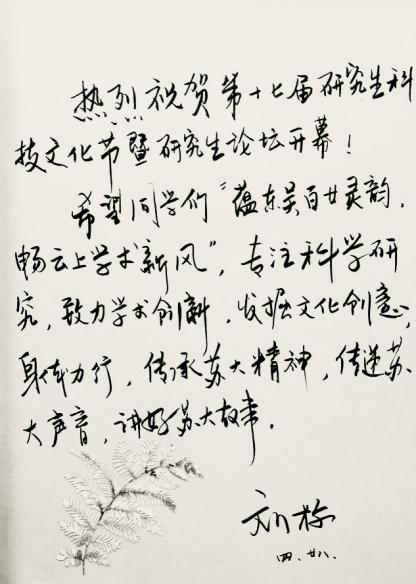 热烈祝贺第十七届研究生科
技文化节暨研究生论坛开幕！
希望同学们“蕴东吴百廿灵韵，
畅云上学术新风”，专注科学研
究，致力学术创新，发掘文化创意，
身体力行，传承苏大精神，传递苏
大声音，讲好苏大故事。
刘标
四.廿八.